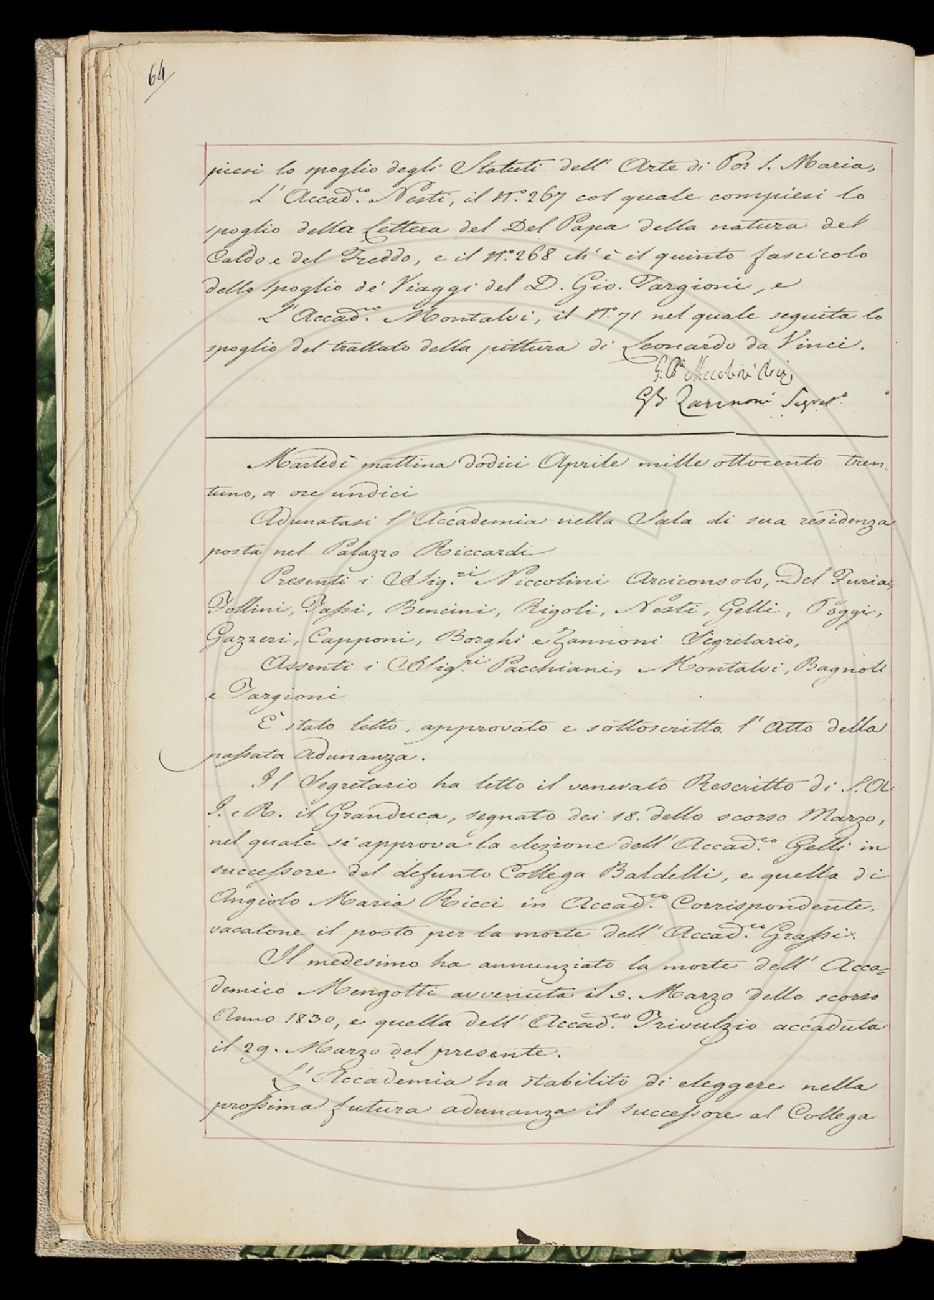 64
piesi lo spoglio degli Statuti dell' Arte di Por S. Maria,
L' Accad.co Nesti, il N.o 267 col quale compiesi lo
spoglio della Lettera del Del Papa della natura del
Caldo e del Freddo, e il N.o 268 ch' è il quinto fascicolo
dello Spoglio de' Viaggi del D. Gio. Targioni, e
L' Accad.co Montalvi, il N.o 71 nel quale seguita lo
spoglio del trattato della pittura di Leonardo da Vinci.
G. Ba Niccolini Arci.
GB. Zannoni Segret.o
Martedì mattina dodici Aprile mille ottocento tren
tuno, a ore undici
Adunatasi l' Accademia nella Sala di sua residenza
posta nel Palazzo Riccardi
Presenti i SSig.ri Niccolini Arciconsolo, Del Furia,
Follini, Tassi, Bencini, Rigoli, Nesti, Gelli, Poggi,
Gazzeri, Capponi, Borghi e Zannoni Segretario,
Assenti i SSig.ri Pacchiani, Montalvi, Bagnoli
e Targioni
È stato letto, approvato e sottoscritto l' Atto della
passata adunanza.
Il Segretario ha letto il venerato Rescritto di S. A
I. e R. il Granduca, segnato dei 18. dello scorso Marzo,
nel quale si approva la elezione dell' Accad.co Gelli in
successore del defunto Collega Baldelli, e quella di
Angiolo Maria Ricci in Accad.co Corrispondente,
vacatone il posto per la morte dell' Accad.co Grassi.
Il medesimo ha annunziato la morte dell' Acca=
demico Mengotti avvenuta il 5. Marzo dello scorso
Anno 1830, e quella dell' Accad.co Trivulzio accaduta
il 29. Marzo del presente.
L' Accademia ha stabilito di eleggere nella
prossima futura adunanza il successore al Collega